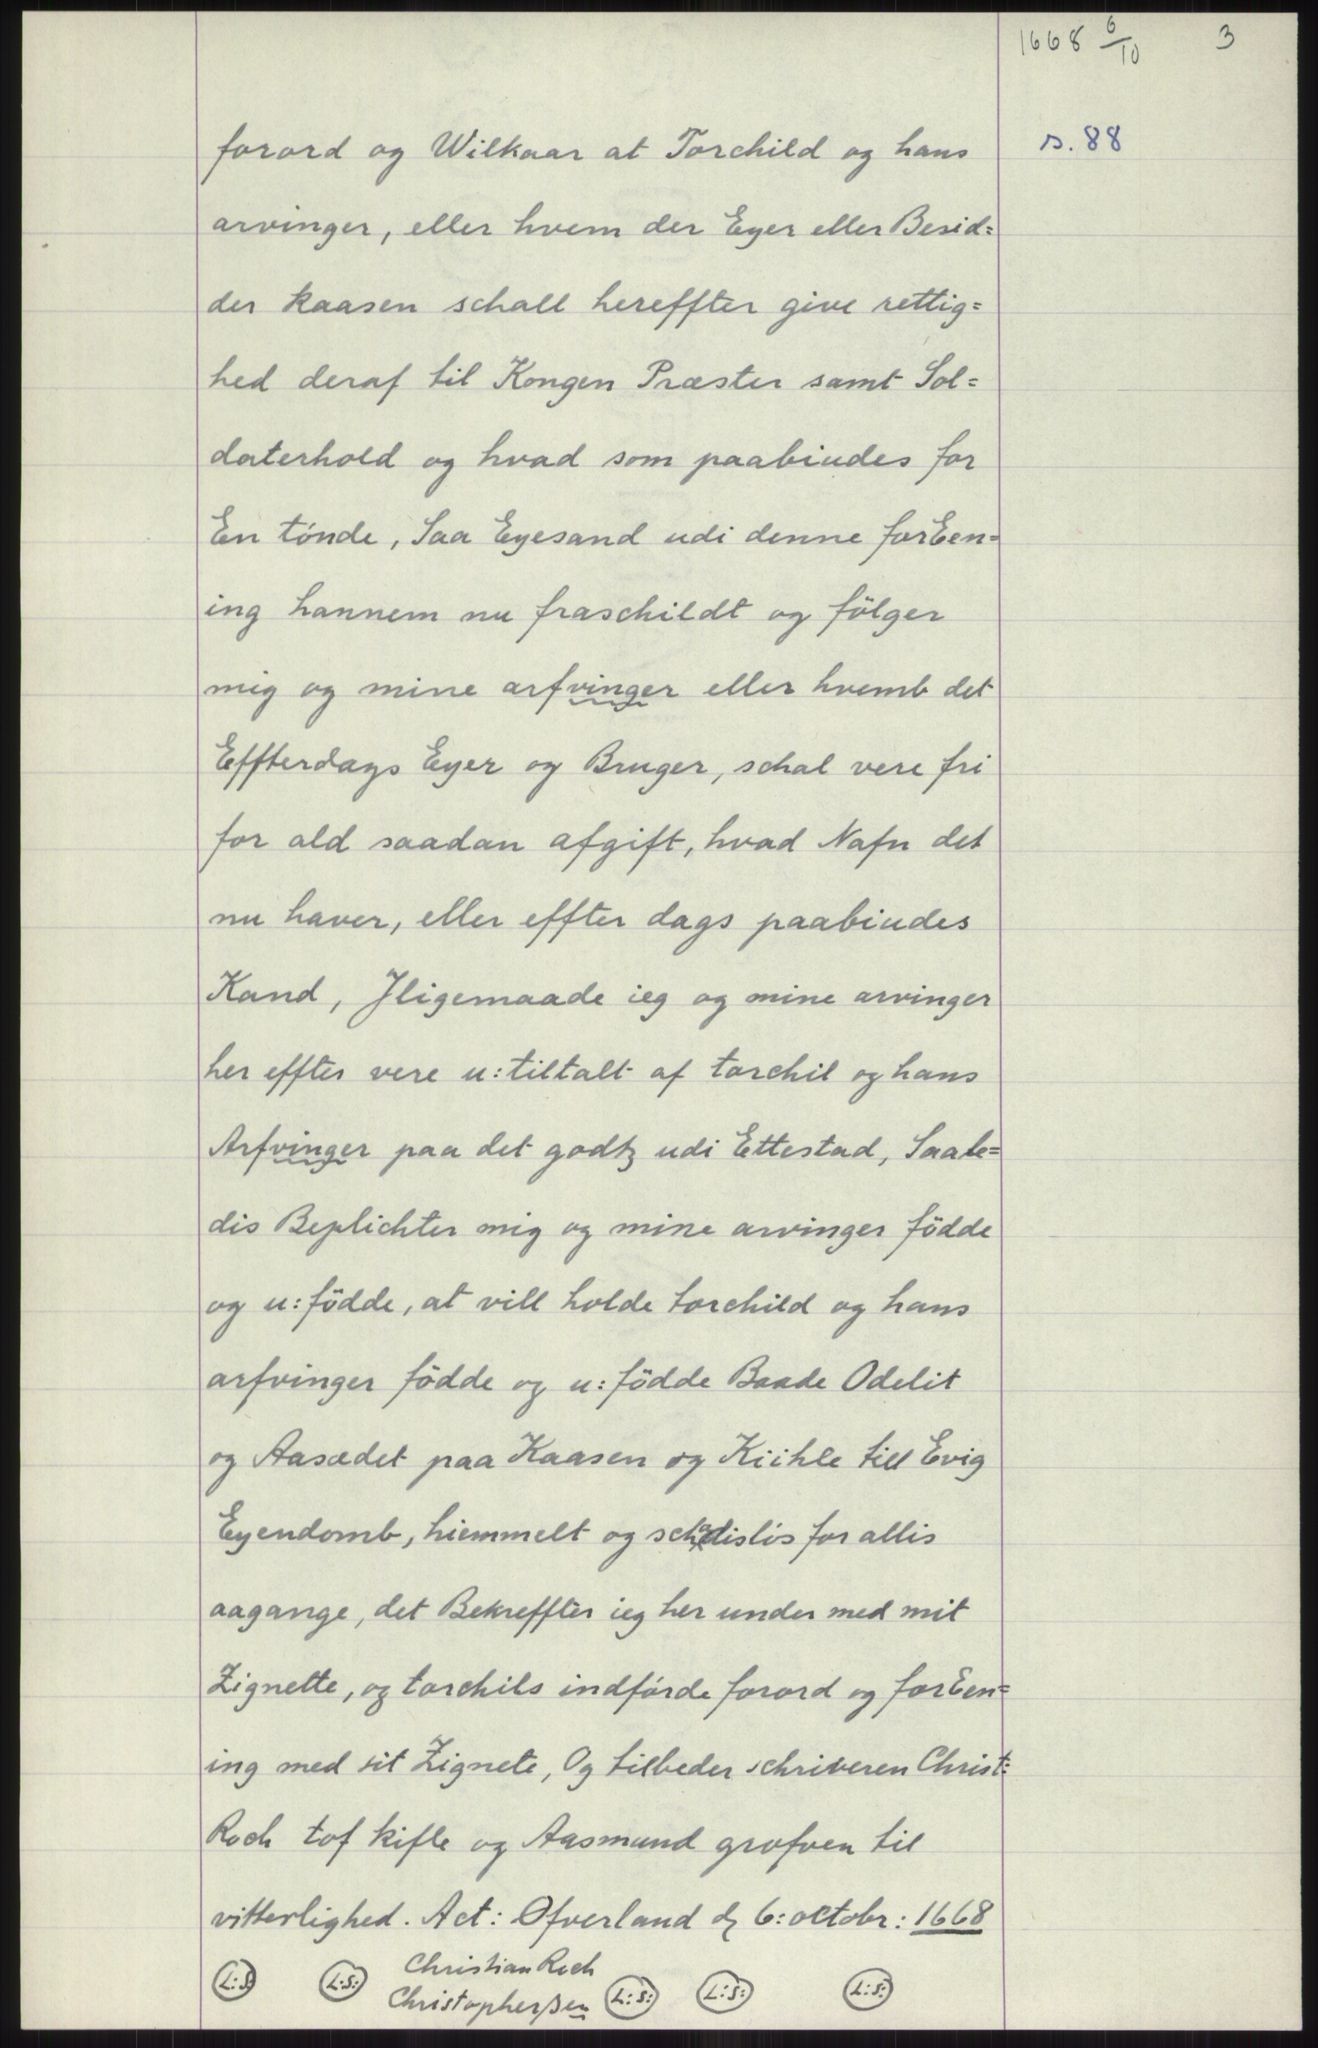 1668 6/10 3
s. 88
forord og Wilkaar at Torchild og hans
arvinger, eller hvem der Eyer eller Besid=
der kaasen schall hereffter give rettig=
hed deraf til Kongen Præster samt Sol=
daterhold og hvad som paabiudes for
En tónde, Saa Eyesand udi denne forEen=
ing hannem nu fraschildt og fölger
mig og mine arfvinger eller hvemb det
Effterdags Eyer og Bruger, schal vere fri
for ald saadan afgift, hvad Nafn det
nu haver, eller effter dags paabiudes
Kand, Jligemaade ieg og mine arvinger
her effter vere u:tiltalt af torchil og hans
Arfvinger paa det godtz udi Ettestad, Saale=
dis Beplichter mig og mine arvinger födde
og u:födde, at vill holde torchild og hans
arfvinger födde og u:födde Baade Odelit
og Aasædet paa Kaasen og Kiihle till Evig
Eyendomb, hiemmelt og schadislós for allis
aagange, det Bekreffter ieg her under med mit
Zignette, og torchils indfórde forord og forEen=
ing med sit Zignete, Og tilbeder schriveren Christ:
Roch tof kifle og Aasmund grofven til
vitterlighed. Act: Ofverland d. 6: octobr: 1668
L:S: L:S: Christian Roch
Christopherßen L:S: L:S: L:S: